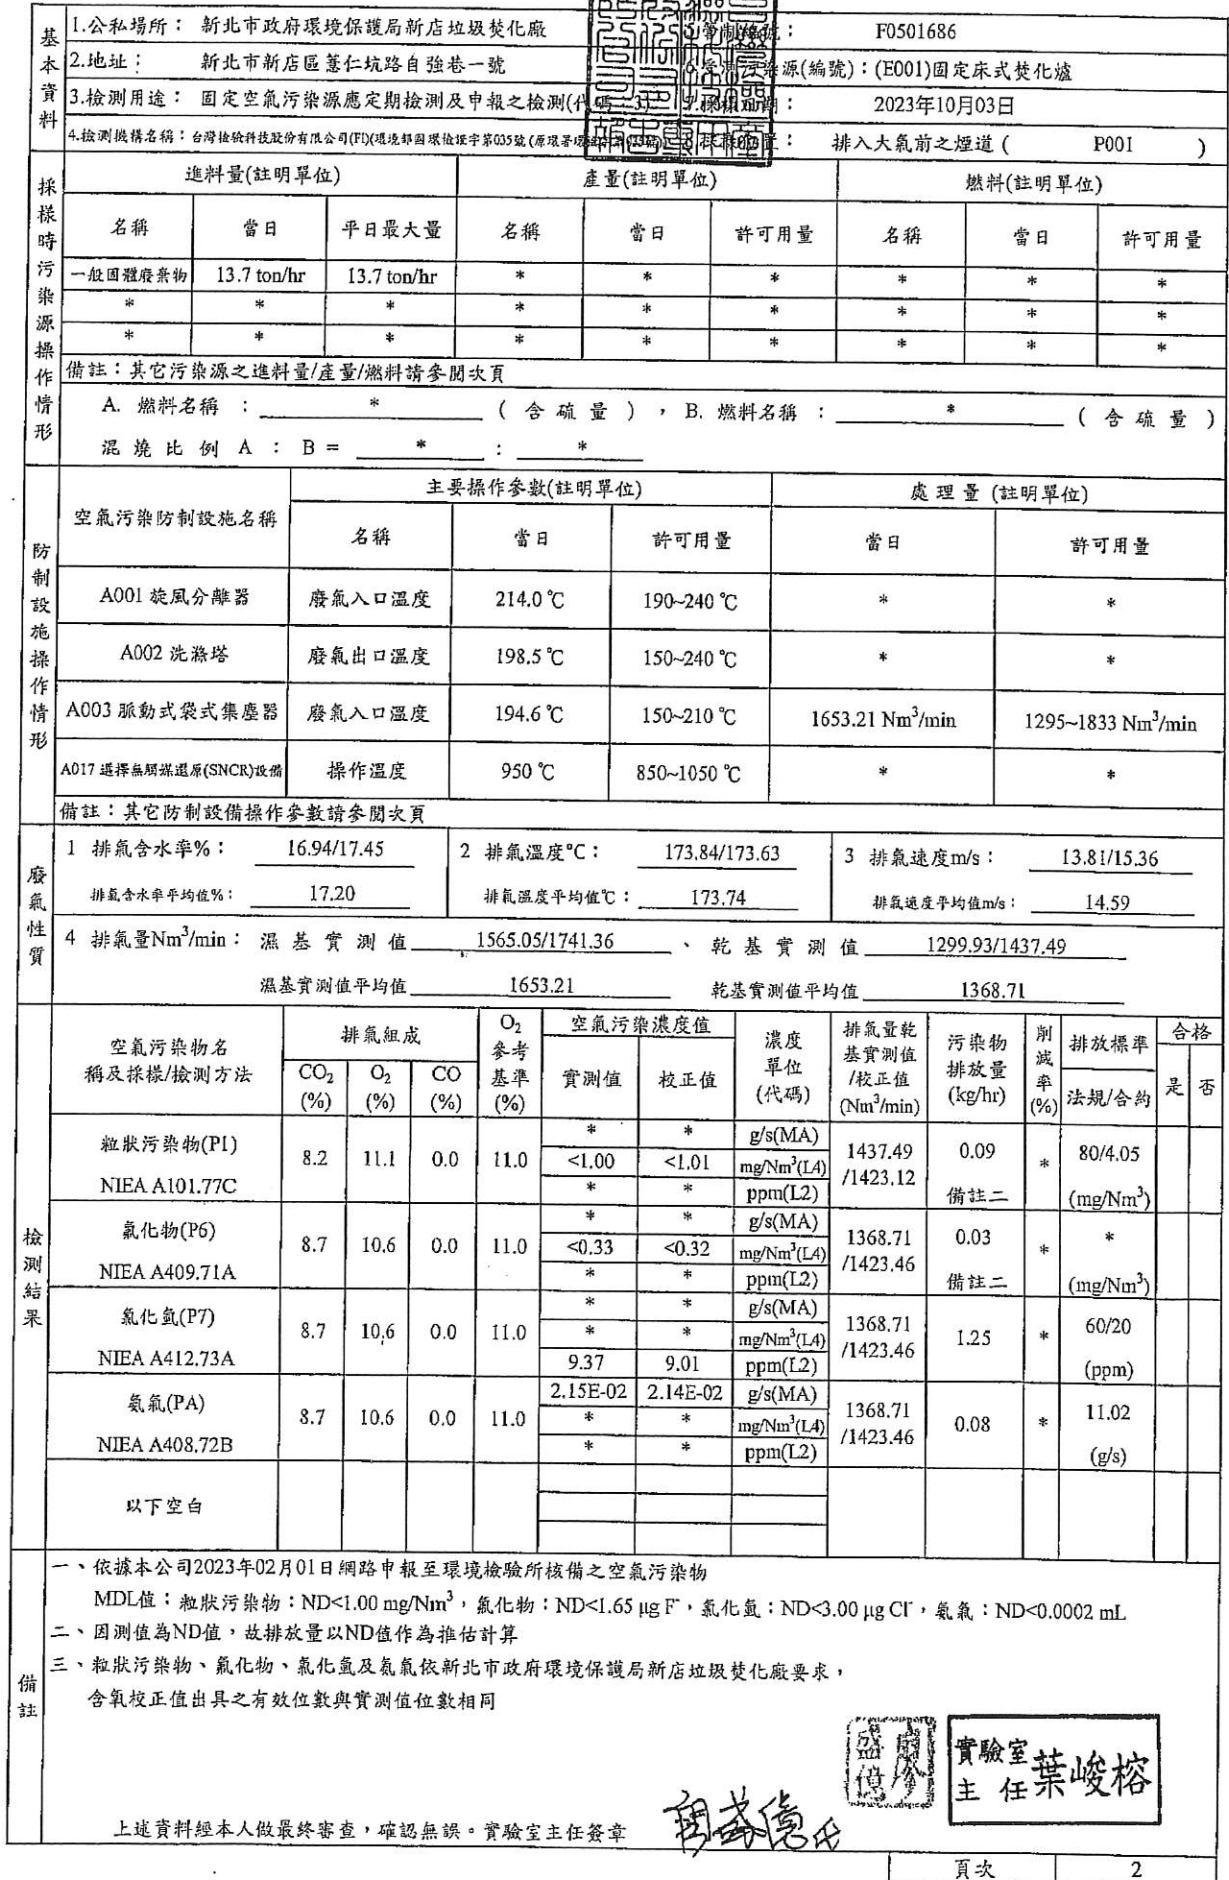 基本資料
1.公私場所： 新北市政府環境保護局新店垃圾焚化廠 管制編號： F0501686
2.地址： 新北市新店區薏仁坑路自強巷一號 污染源(編號)：(E001)固定床式焚化爐
3.檢測用途： 固定空氣污染源應定期檢測及申報之檢測(代碼：3) 日期： 2023年10月03日
4.檢測機構名稱：台灣檢驗科技股份有限公司(FI)(環境部國環檢證字第035號(原環署環 置： 排入大氣前之煙道 ( P001 )
採樣時污染源操作情形
進料量(註明單位) 產量(註明單位) 燃料(註明單位)
名稱 當日 平日最大量 名稱 當日 許可用量 名稱 當日 許可用量
一般固體廢棄物 13.7 ton/hr 13.7 ton/hr * * * * * *
* * * * * * * * *
* * * * * * * * *
備註：其它污染源之進料量/產量/燃料請參閱次頁
A. 燃料名稱 ： * ( 含 硫 量 ) ，B. 燃料名稱 ： * ( 含 硫 量 )
混 燒 比 例 A ： B = * ： *
防制設施操作情形
空氣污染防制設施名稱 主要操作參數(註明單位) 處 理 量 (註明單位)
名稱 當日 許可用量 當日 許可用量
A001 旋風分離器 廢氣入口溫度 214.0 ℃ 190~240 ℃ * *
A002 洗滌塔 廢氣出口溫度 198.5 ℃ 150~240 ℃ * *
A003 脈動式袋式集塵器 廢氣入口溫度 194.6 ℃ 150~210 ℃ 1653.21 Nm³/min 1295~1833 Nm³/min
A017 選擇無觸媒還原(SNCR)設備 操作溫度 950 ℃ 850~1050 ℃ * *
備註：其它防制設備操作參數請參閱次頁
廢氣性質
1 排氣含水率%： 16.94/17.45 2 排氣溫度℃： 173.84/173.63 3 排氣速度m/s： 13.81/15.36
排氣含水率平均值%： 17.20 排氣溫度平均值℃： 173.74 排氣速度平均值m/s： 14.59
4 排氣量Nm³/min： 濕 基 實 測 值 1565.05/1741.36 、 乾 基 實 測 值 1299.93/1437.49
濕基實測值平均值 1653.21 乾基實測值平均值 1368.71
檢測結果
空氣污染物名稱及採樣/檢測方法 排氣組成 O₂參考基準(%) 空氣污染濃度值 濃度單位(代碼) 排氣量乾基實測值/校正值(Nm³/min) 污染物排放量(kg/hr) 削減率(%) 排放標準 合格
CO₂(%) O₂(%) CO(%) 實測值 校正值 法規/合約 是 否
粒狀污染物(P1) NIEA A101.77C 8.2 11.1 0.0 11.0 1437.49/1423.12 0.09 備註二 * 80/4.05 (mg/Nm³)
* * g/s(MA)
<1.00 <1.01 mg/Nm³(L4)
* * ppm(L2)
氟化物(P6) NIEA A409.71A 8.7 10.6 0.0 11.0 1368.71/1423.46 0.03 備註二 * * (mg/Nm³)
* * g/s(MA)
<0.33 <0.32 mg/Nm³(L4)
* * ppm(L2)
氯化氫(P7) NIEA A412.73A 8.7 10.6 0.0 11.0 1368.71/1423.46 1.25 * 60/20 (ppm)
* * g/s(MA)
* * mg/Nm³(L4)
9.37 9.01 ppm(L2)
氨氣(PA) NIEA A408.72B 8.7 10.6 0.0 11.0 1368.71/1423.46 0.08 * 11.02 (g/s)
2.15E-02 2.14E-02 g/s(MA)
* * mg/Nm³(L4)
* * ppm(L2)
以下空白
備註
一、依據本公司2023年02月01日網路申報至環境檢驗所核備之空氣污染物
MDL值：粒狀污染物：ND<1.00 mg/Nm³，氟化物：ND<1.65 μg F⁻，氯化氫：ND<3.00 μg Cl⁻，氨氣：ND<0.0002 mL
二、因測值為ND值，故排放量以ND值作為推估計算
三、粒狀污染物、氟化物、氯化氫及氨氣依新北市政府環境保護局新店垃圾焚化廠要求，
含氧校正值出具之有效位數與實測值位數相同
實驗室主任 葉峻榕
上述資料經本人做最終審查，確認無誤。實驗室主任簽章
頁次 2